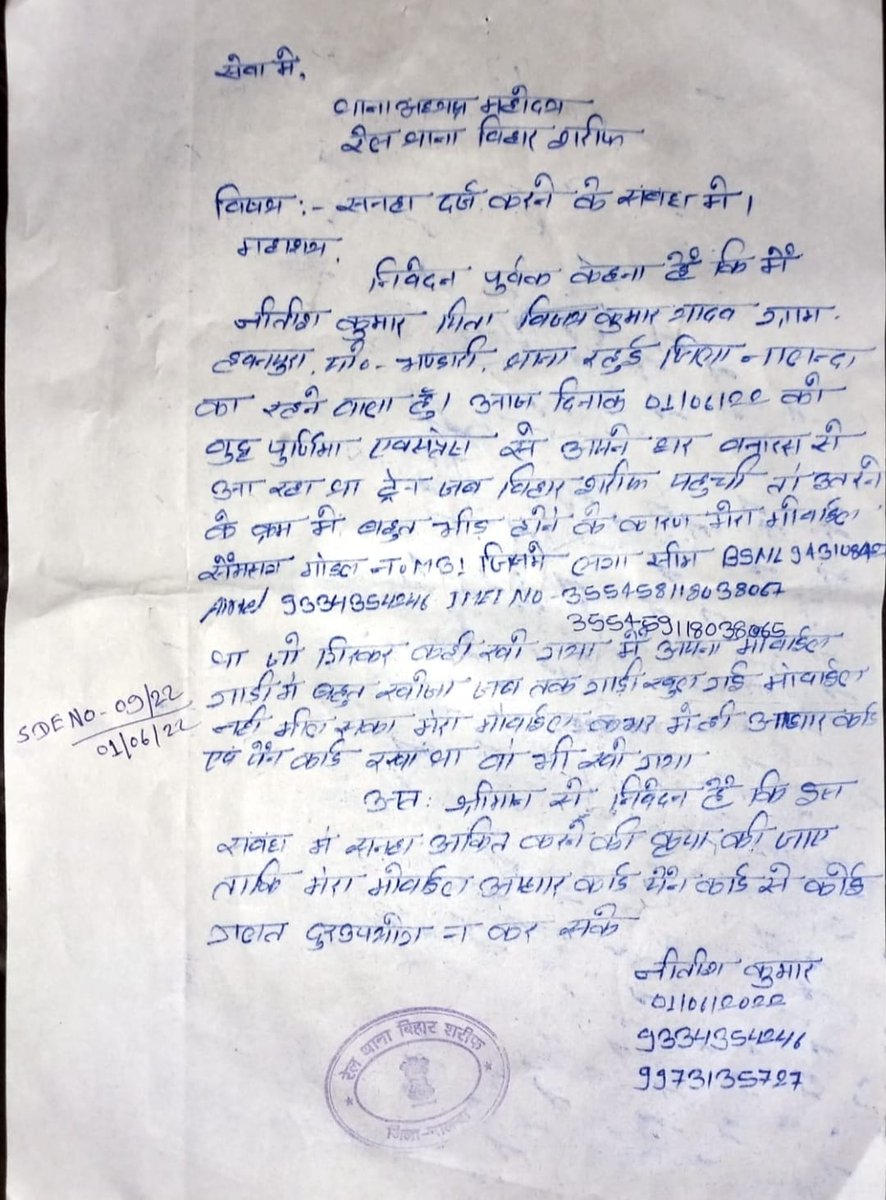 सेवा मे,
थाना अध्यक्ष महोदय
रेल थाना बिहार शरीफ
विषय :- सनहा दर्ज करने के संबंध मे।
महाशय,
निवेदन पुर्वक केहना हैं कि मैं
नीतीश कुमार पिता विजय कुमार यादव ग्राम-
पो०- भण्डारी, थाना रहुई जिला नालन्दा
का रहने वाला हुँ। आज दिनाक 01/06/22 को
बुद्ध पुर्णिमा एक्सप्रेस से अपने घर बनारस से
आ रहा था ट्रेन जब बिहार शरीफ पहुची तो उतरने
के क्रम मे बहुत भीड़ होने के कारण मेरा मोबाईल
सैमसंग मोडल न० M31 जिसमे लगा सीम BSNL 94310842
Airtel 9334354246 IMEI NO-355458118038067
355459118038065
था जो गिरकर कही खो गया मैं अपना मोबाईल
गाड़ी मे बहुत खोजा जब तक गाड़ी खुल गई मोबाईल
SDE NO- 09/22
01/06/22
नही मील सका मेरा मोबाईल कभर मे ही आधार कार्ड
एवं पैन कार्ड रखा था वो भी खो गया
अतः श्रीमान से निवेदन हैं कि इस
संबंध मे सनहा अंकित करने की कृपा की जाए
ताकि मेरा मोबाईल आधार कार्ड पैन कार्ड से कोई
गलत दुरउपयोग न कर सके
नीतीश कुमार
01/06/2022
9334354246
9973135727
रेल थाना बिहार शरीफ
जिला-नालन्दा